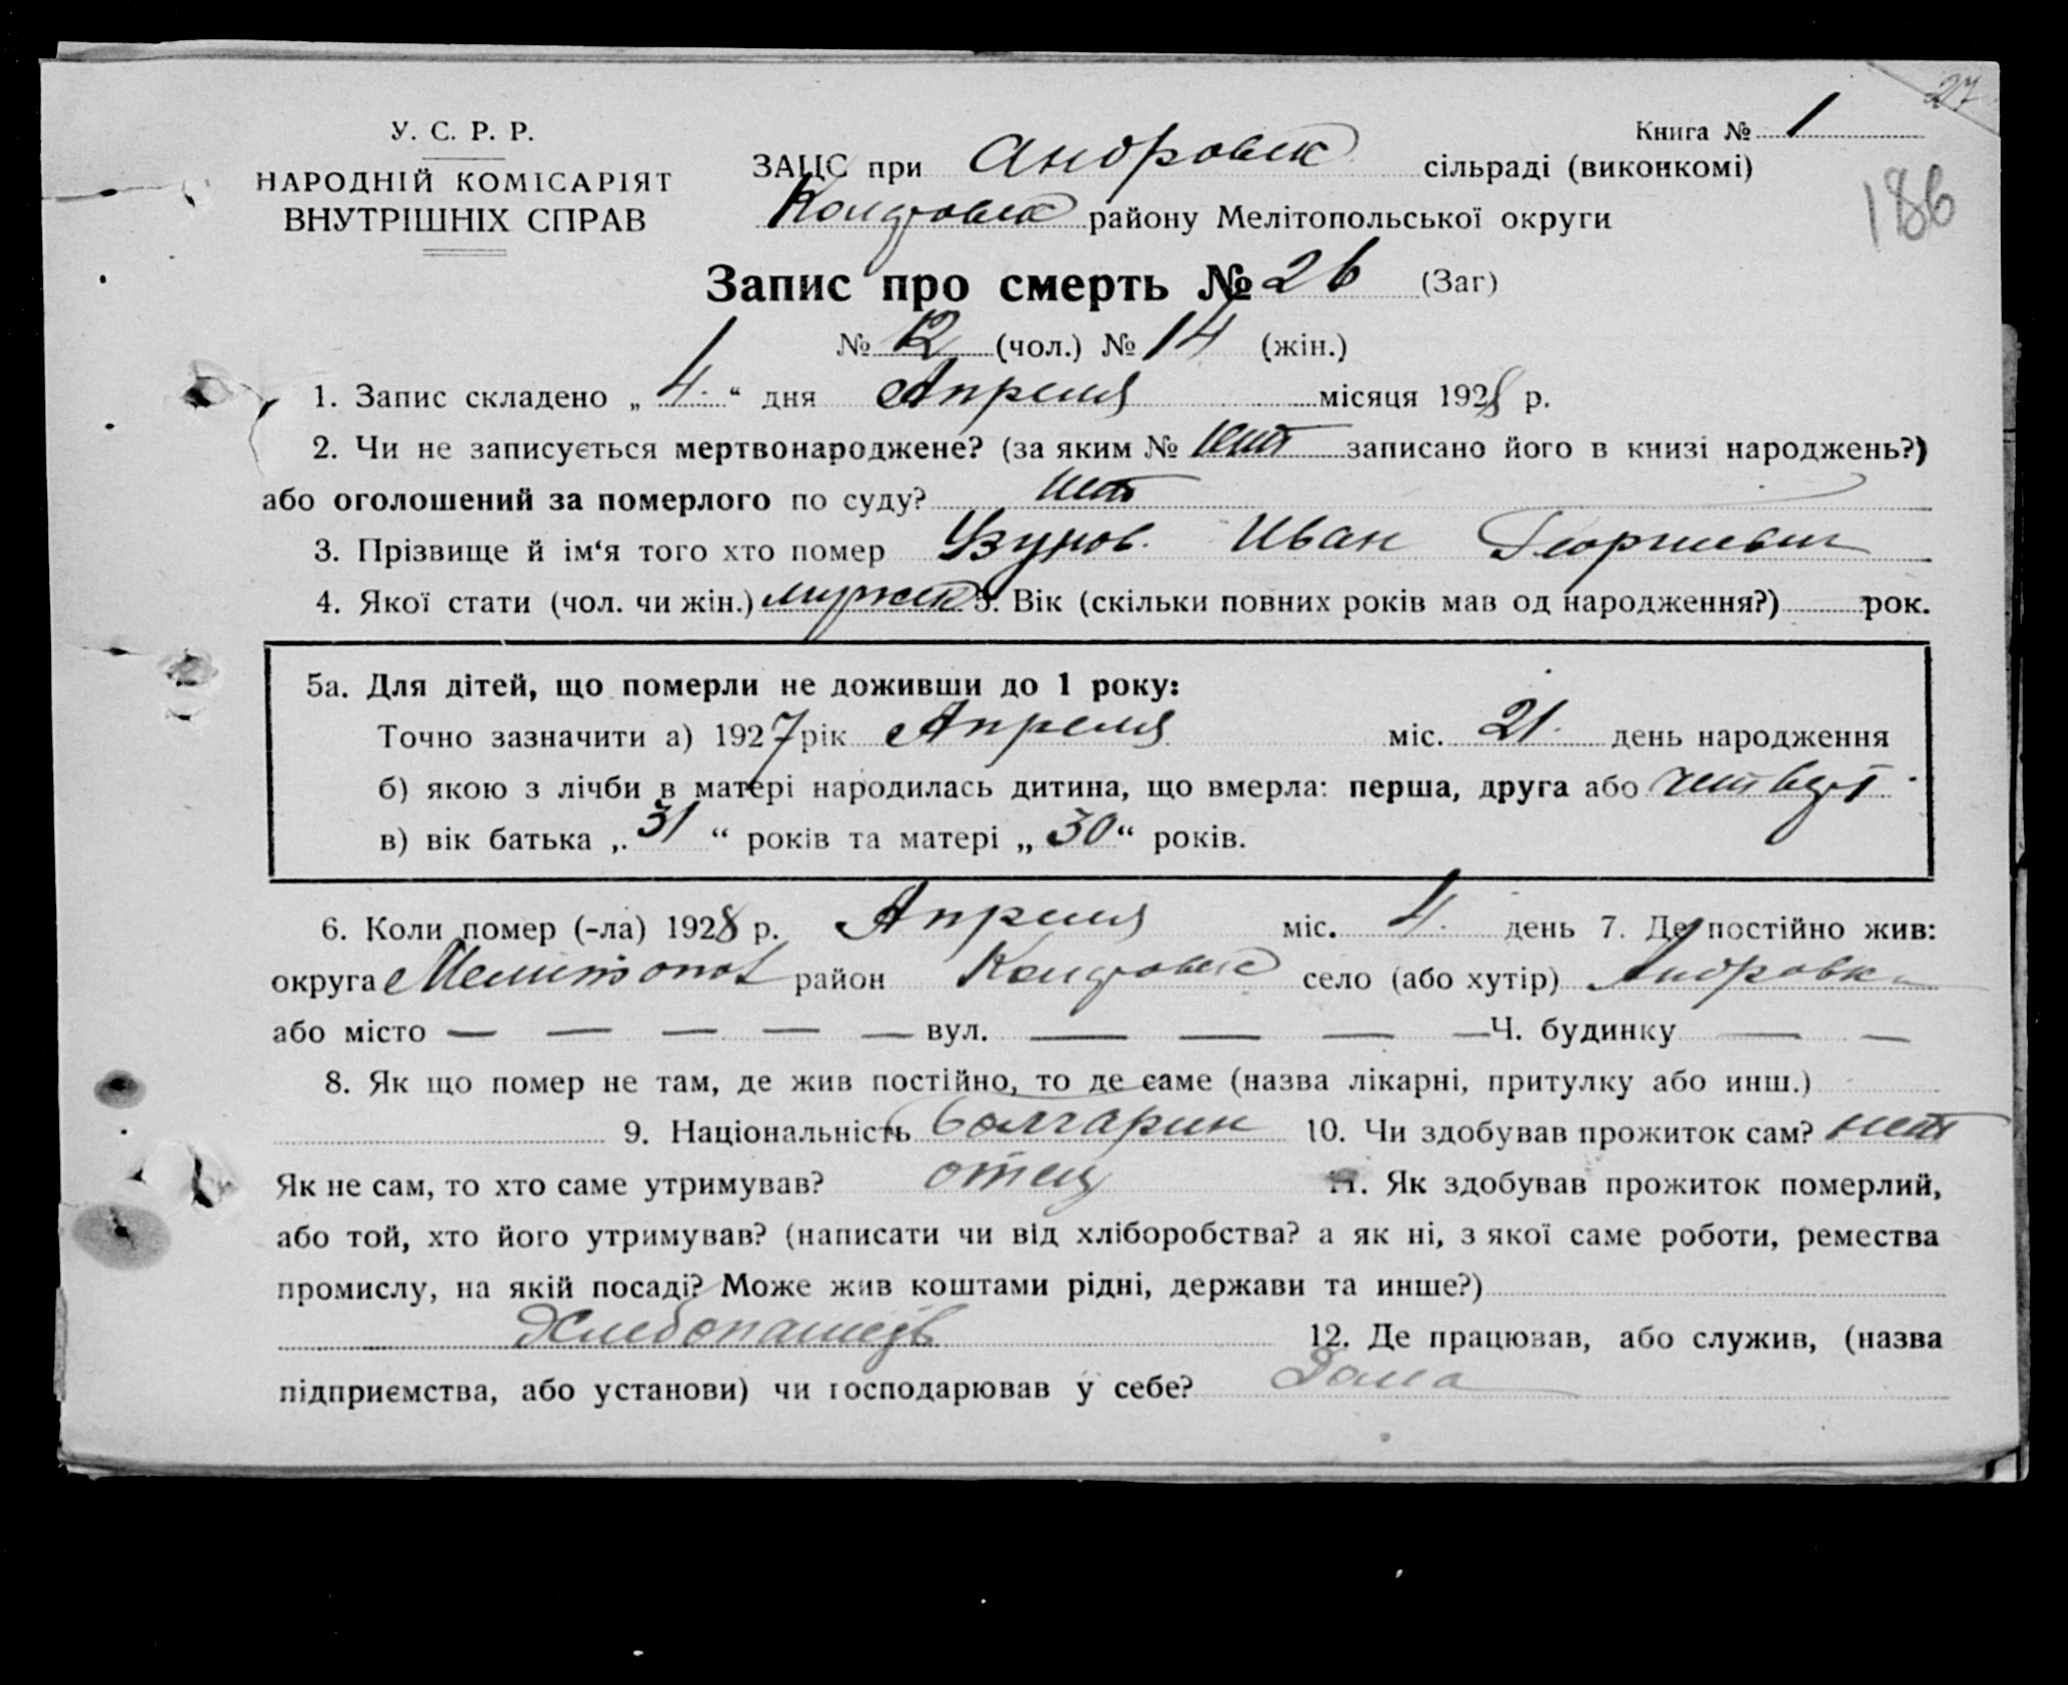 27
У. С. Р. Р.
НАРОДНІЙ КОМІСАРІЯТ
ВНУТРІШНІХ СПРАВ
Книга № 1
186
ЗАЦС при Андровск сільраді (виконкомі)
району Мелітопольської округи
Запис про смерть № 26 (Заг)
№ 12 (чол.) № 14 (жін.)
1. Запис складено „ 4 “ дня Апреля місяця 1928 р.
2. Чи не записується мертвонароджене? (за яким № нет записано його в книзі народжень?)
або оголошений за померлого по суду? нет
3. Прізвище й ім‘я того хто помер Узунов Иван Георгиевич
4. Якої стати (чол. чи жін.) мужск 5. Вік (скільки повних років мав од народження?) рок.
5а. Для дітей, що померли не доживши до 1 року:
Точно зазначити а) 1927 рік Апреля міс. 21 день народження
б) якою з лічби в матері народилась дитина, що вмерла: перша, друга або четверт
в) вік батька „ 31 “ років та матері „ 30 “ років.
6. Коли помер (-ла) 1928 р. Апреля міс. 4 день 7. Де постійно жив:
округа Мелитопол район село (або хутір) Андровка
або місто — — — — — вул. — — — — Ч. будинку — —
8. Як що помер не там, де жив постійно, то де саме (назва лікарні, притулку або инш.)
9. Національність болгарин 10. Чи здобував прожиток сам? нет
Як не сам, то хто саме утримував? отец 11. Як здобував прожиток померлий,
або той, хто його утримував? (написати чи від хліборобства? а як ні, з якої саме роботи, ремества
промислу, на якій посаді? Може жив коштами рідні, держави та инше?)
Хлебопашец 12. Де працював, або служив, (назва
підприємства, або установи) чи господарював у себе? Дома